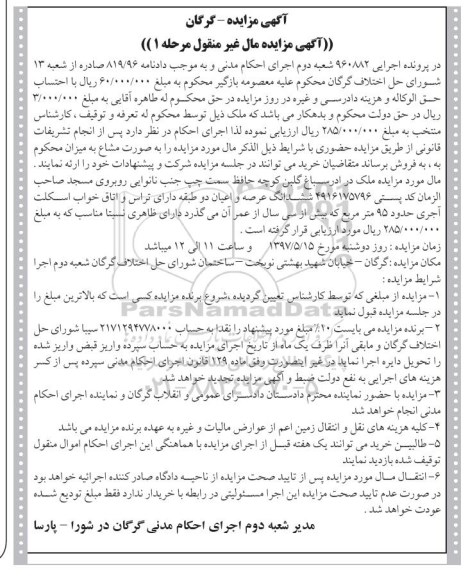 آگهی مزایده – گرگان
((آگهی مزایده مال غیر منقول مرحله ۱))
در پرونده اجرایی ۹۶۰۸۸۲ شعبه دوم اجرای احکام مدنی و به موجب دادنامه ۸۱۹/۹۶ صادره از شعبه ۱۳
شورای حل اختلاف گرگان محکوم علیه معصومه بازگیر محکوم به مبلغ ۶۰/۰۰۰/۰۰۰ ریال با احتساب
حق الوکاله و هزینه دادرسی و غیره در روز مزایده در حق محکوم له طاهره آقایی به مبلغ ۳/۰۰۰/۰۰۰
ریال در حق دولت محکوم و بدهکار می باشد که ملک ذیل توسط محکوم له تعرفه و توقیف ، کارشناس
منتخب به مبلغ ۲۸۵/۰۰۰/۰۰۰ ریال ارزیابی نموده لذا اجرای احکام در نظر دارد پس از انجام تشریفات
قانونی از طریق مزایده حضوری با شرایط ذیل الذکر مال مورد مزایده را به صورت مشاع به میزان محکوم
به ، به فروش برساند متقاضیان خرید می توانند در جلسه مزایده شرکت و پیشنهادات خود را ارئه نمایند .
مال مورد مزایده ملک در ادرس باغ گلبن کوچه حافظ سمت چپ جنب نانوایی روبروی مسجد صاحب
الزمان کد پستی ۴۹۱۶۱۷۵۷۹۶ عرصه و اعیان دو طبقه دارای تراس و اتاق خواب اسکلت
آجری حدود ۹۵ متر مربع که بیش از سی سال از عمر آن می گذرد دارای ظاهری نسبتا مناسب که به مبلغ
۲۸۵/۰۰۰/۰۰۰ ریال مورد ارزیابی قرار گرفته است .
زمان مزایده : روز دوشنبه مورخ ۱۳۹۷/۵/۱۵ و ساعت ۱۱ الی ۱۲ میباشد
مکان مزایده : گرگان – خیابان شهید بهشتی نوبخت – ساختمان شورای حل اختلاف گرگان شعبه دوم اجرا
شرایط مزایده :
۱– مزایده از مبلغی که توسط کارشناس تعیین گردیده ،شروع برنده مزایده کسی است که بالاترین مبلغ را
در جلسه مزایده قبول نماید
۲– برنده مزایده می بایست ۱۰٪ مبلغ مورد پیشنهاد را نقدا به حساب ۲۱۷۱۲۹۴۷۷۸۰۰۰ سیبا شورای حل
اختلاف گرگان و مابقی آنرا ظرف یک ماه از تاریخ اجرای مزایده به حساب سپرده واریز قبض واریز شده
را تحویل دایره اجرا نماید در غیر اینصورت وفق ماده ۱۲۹ قانون اجرای احکام مدنی سپرده پس از کسر
هزینه های اجرایی به نفع دولت ضبط و آگهی مزایده تجدید خواهد شد
۳– مزایده با حضور نماینده محترم دادستان دادسرای عمومی و انقلاب گرگان و نماینده اجرای احکام
مدنی انجام خواهد شد
۴–کلیه هزینه های نقل و انتقال زمین اعم از عوارض مالیات و غیره به عهده برنده مزایده می باشد
۵– طالبین خرید می توانند یک هفته قبل از اجرای مزایده با هماهنگی این اجرای احکام اموال منقول
توقیف شده بازدید نمایند
۶– انتقال مال مورد مزایده پس از تایید صحت مزایده از ناحیه دادگاه صادر کننده اجرائیه خواهد بود
در صورت عدم تایید صحت مزایده این اجرا مسئولیتی در رابطه با خریدار ندارد فقط مبلغ تودیع شده
عودت خواهد شد .
مدیر شعبه دوم اجرای احکام مدنی گرگان در شورا – پارسا